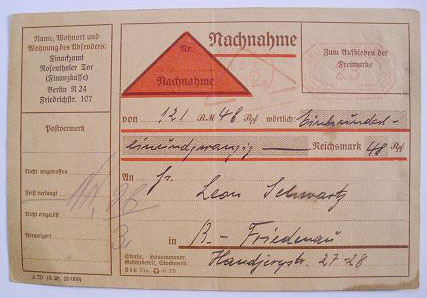 Name, Wohnort und
Wohnung des Absenders:
Finanzamt
Rosenthaler Tor
(Finanzkasse)
Berlin N 24
Friedrichstr. 107
Postvermerk
Nicht angetroffen
Frist verlangt
Nicht eingelöst
Verweigert
A 70 (6. 28. 20 000)
Nachnahme
Nr.
Nachnahme
Zum Aufkleben der
Freimarke
von 121 RM 48 Rpf wörtlich: Einhundert-
einundzwanzig Reichsmark 48 Rpf
An Hr.
Leon Schwartz
in B.- Friedenau
Handjerystr. 27-28
Straße, Hausnummer,
Gebäudeteil, Stockwerk: